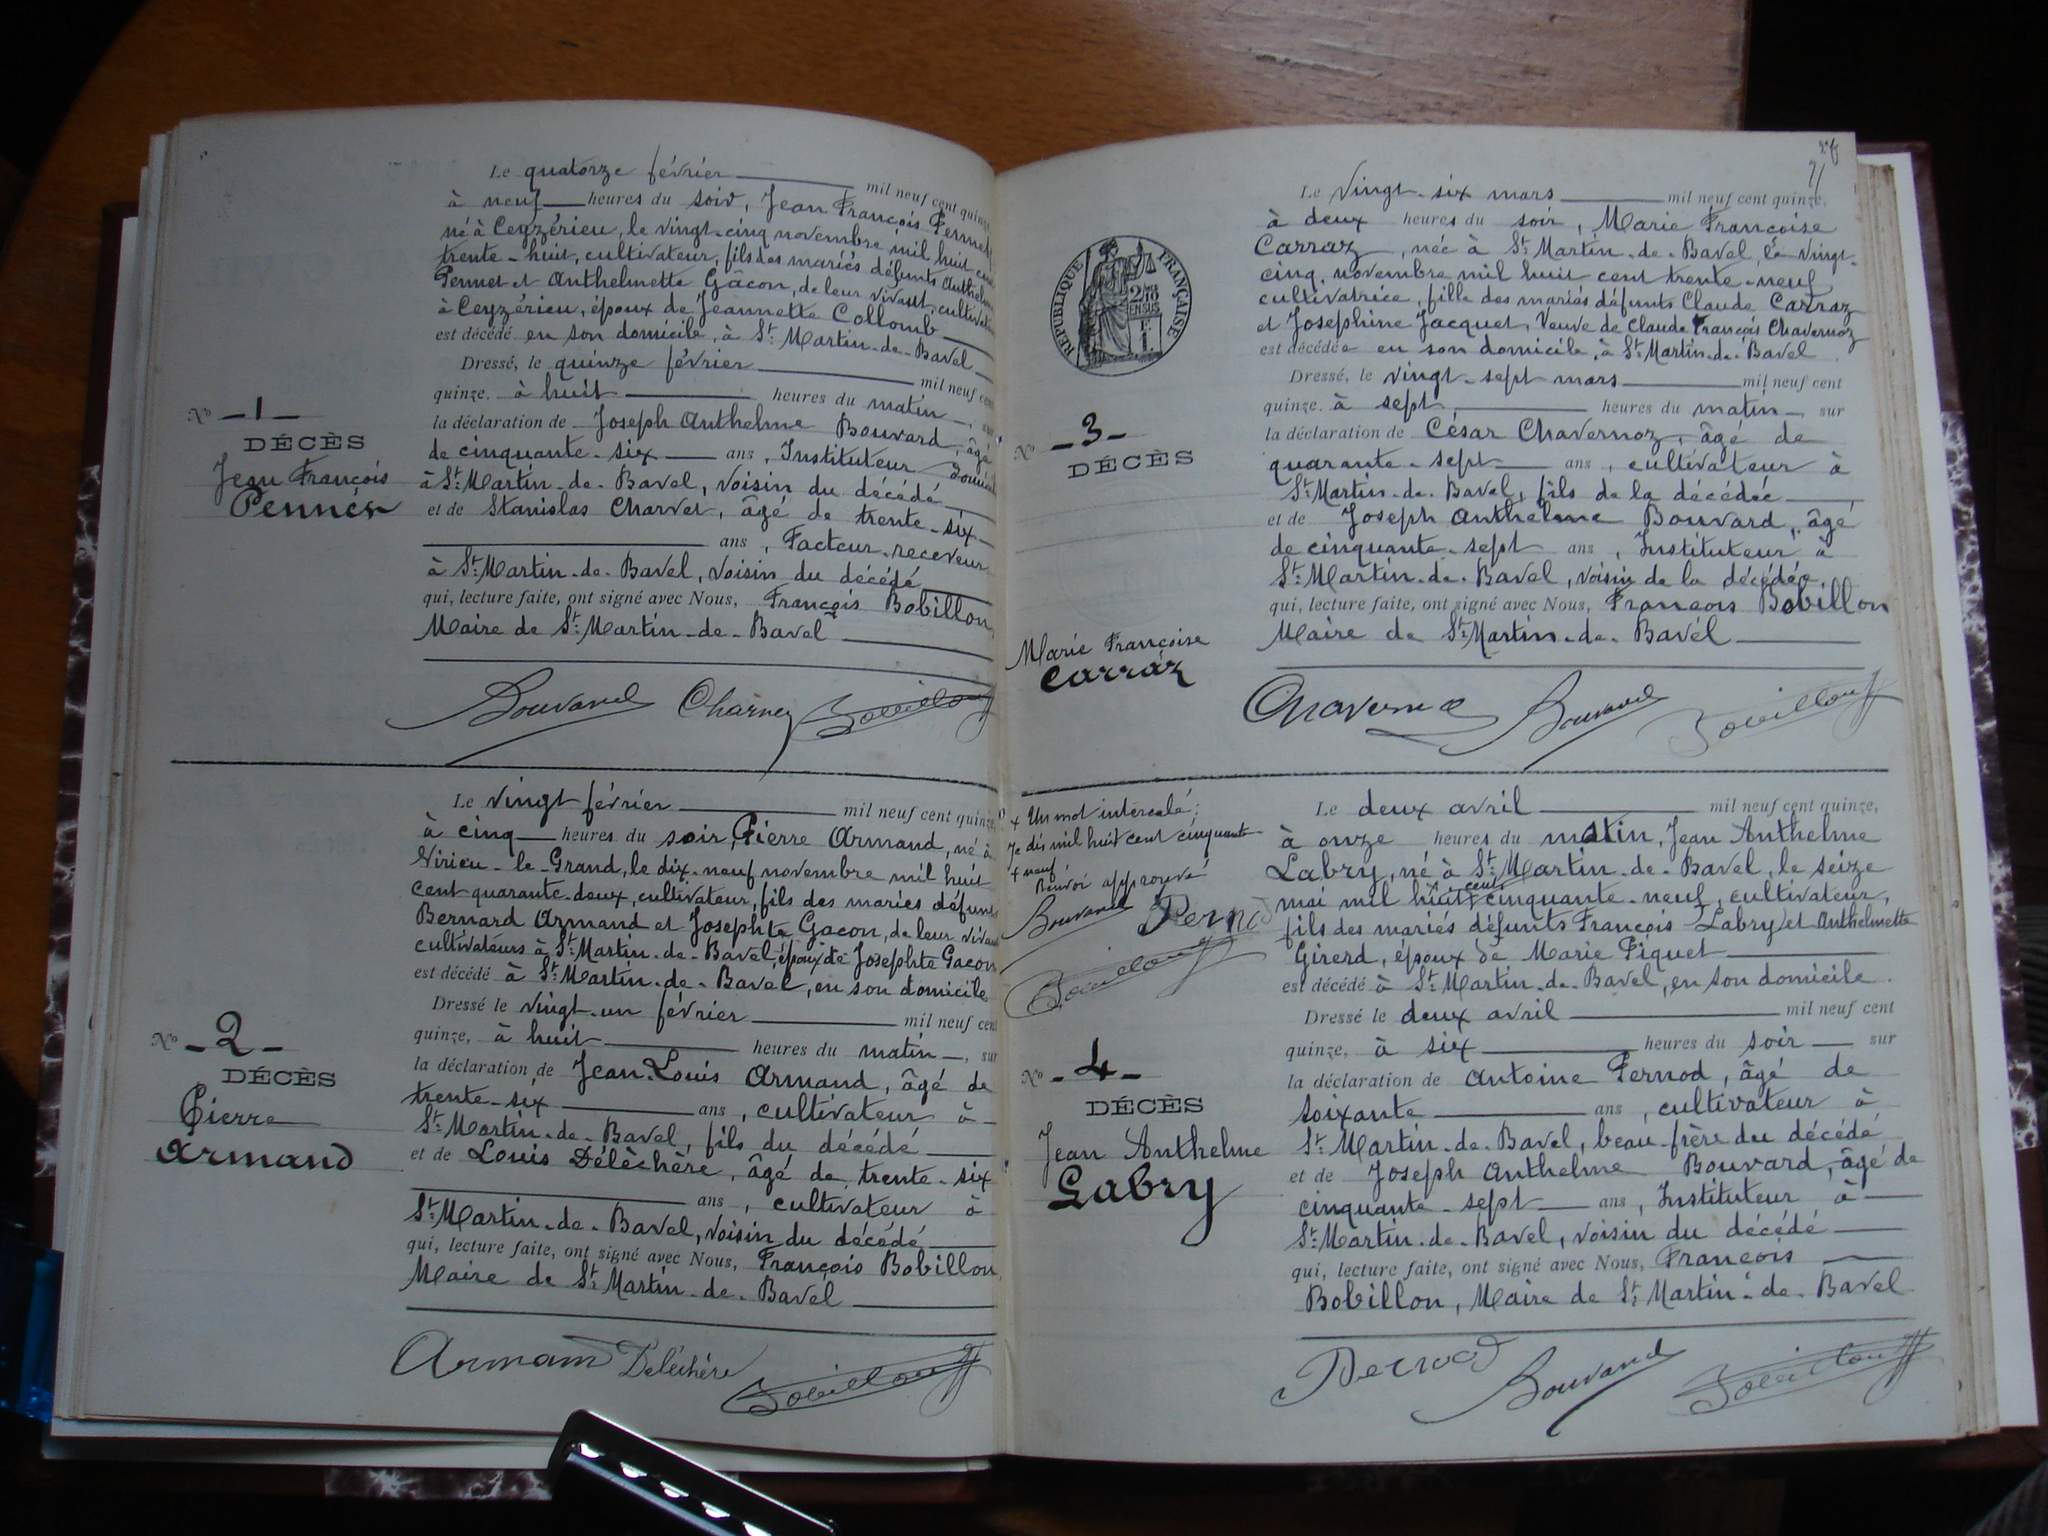 Le quatorze février mil neuf cent quinze,
à neuf heures du soir, Jean François Pennet
né à Ceyzérieu, le vingt-cinq novembre mil huit cent
trente-huit, cultivateur, fils des mariés défunts Anthelme
Pennet et Anthelmette Gâcon, de leur vivant, cultivateurs
à Ceyzérieu, époux de Jeannette Collomb
est décédé en son domicile, à St Martin-de-Bavel
Dressé, le quinze février mil neuf cent
quinze. à huit heures du matin, sur
la déclaration de Joseph Anthelme Bouvard, âgé
de cinquante-six ans, Instituteur
à St Martin-de-Bavel, voisin du décédé
et de Stanislas Charvet, âgé de trente-six
ans, Facteur-receveur
à St Martin-de-Bavel, voisin du décédé
qui, lecture faite, ont signé avec Nous, François Bobillon,
Maire de St Martin-de-Bavel
No -1-
DÉCÈS
Jean François
Pennet
Bouvard Charvet Bobillon
Le vingt février mil neuf cent quinze,
à cinq heures du soir, Pierre Armand, né à
Virieu-le-Grand, le dix-neuf novembre mil huit
cent quarante-deux, cultivateur, fils des mariés défunts
Bernard Armand et Josephte Gacon, de leur vivant
cultivateurs à St Martin-de-Bavel, époux de Josephte Gacon
est décédé à St Martin-de-Bavel, en son domicile
Dressé le vingt-un février mil neuf cent
quinze, à huit heures du matin, sur
la déclaration de Jean-Louis Armand, âgé de
trente-six ans, cultivateur à
St Martin-de-Bavel, fils du décédé
et de Louis Délèchère, âgé de trente-six
ans, cultivateur à
St Martin-de-Bavel, voisin du décédé
qui, lecture faite, ont signé avec Nous, François Bobillon,
Maire de St Martin-de-Bavel
No -2-
DÉCÈS
Pierre
Armand
Armand Deléchère Bobillon
Le vingt-six mars mil neuf cent quinze,
à deux heures du soir, Marie Françoise
Carraz, née à St Martin-de-Bavel, le vingt-
cinq novembre mil huit cent trente-neuf
cultivatrice, fille des mariés défunts Claude Carraz
et Josephine Jacquet, Veuve de Claude François Chavernoz
est décédée en son domicile, à St Martin-de-Bavel
Dressé, le vingt-sept mars mil neuf cent
quinze. à sept heures du matin, sur
la déclaration de César Chavernoz, âgé de
quarante-sept ans, cultivateur à
St Martin-de-Bavel, fils de la décédée,
et de Joseph Anthelme Bouvard, âgé
de cinquante-sept ans, Instituteur à
St Martin-de-Bavel, voisin de la décédée,
qui, lecture faite, ont signé avec Nous, François Bobillon
Maire de St Martin-de-Bavel
RÉPUBLIQUE FRANÇAISE
2/10
EN SUS
1 F.
No -3-
DÉCÈS
Marie Françoise
Carraz
Chavernoz Bouvard Bobillon
x Un mot intercalé;
Je dis mil huit cent cinquante
+ neuf
Renvoi approuvé
Bouvard Pernod
Bobillon
Le deux avril mil neuf cent quinze,
à onze heures du matin, Jean Anthelme
Labry, né à St Martin-de-Bavel, le seize
mai mil huit cent cinquante-neuf, cultivateur,
fils des mariés défunts François Labry et Anthelmette
Girerd, époux de Marie Piquet
est décédé à St Martin-de-Bavel, en son domicile.
Dressé le deux avril mil neuf cent
quinze, à six heures du soir sur
la déclaration de Antoine Pernod, âgé de
soixante ans, cultivateur à
St Martin-de-Bavel, beau-frère du décédé
et de Joseph Anthelme Bouvard, âgé de
cinquante-sept ans, Instituteur à
St Martin-de-Bavel, voisin du décédé
qui, lecture faite, ont signé avec Nous, François
Bobillon, Maire de St Martin-de-Bavel
No -4-
DÉCÈS
Jean Anthelme
Labry
Pernod Bouvard Bobillon